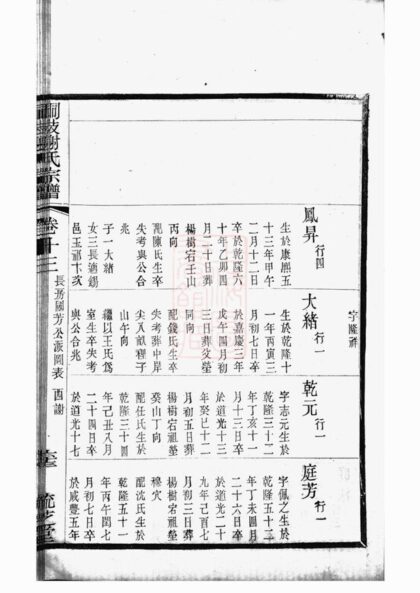 字隆祥
鳳昇 行四
生於康熙五
十三年甲午
二月十二日
卒於乾隆六
十年乙卯四
月二十日葬
楊樹宕壬山
丙向
配陳氏生卒
失考與公合
兆
子一大緒
女三長適錫
邑玉祁卞亥
大緒 行一
生於乾隆十
一年丙寅三
月初七日卒
於嘉慶三年
戊午四月初
三日葬父塋
同向
配錢氏生卒
失考葬中岸
尖入 程子
山午向
繼以王氏爲
室生卒失考
與公合兆
乾元 行一
字志元生於
乾隆三十二
年丁亥十一
月十三日卒
於道光十三
年癸巳十二
月初五日葬
楊樹宕祖塋
癸山丁向
配任氏生於
乾隆三十四
年己丑八月
二十四日卒
於道光十七
庭芳 行一
字佩之生於
乾隆五十二
年丁未四月
二十六日卒
於道光二十
九年己酉七
月初三日葬
楊樹宕祖塋
穆穴
配沈氏生於
乾隆五十一
年丙午閏七
月初七日卒
於咸豐五年
岐謝氏宗譜 卷十三 長房國芳公派圖表 酉謝